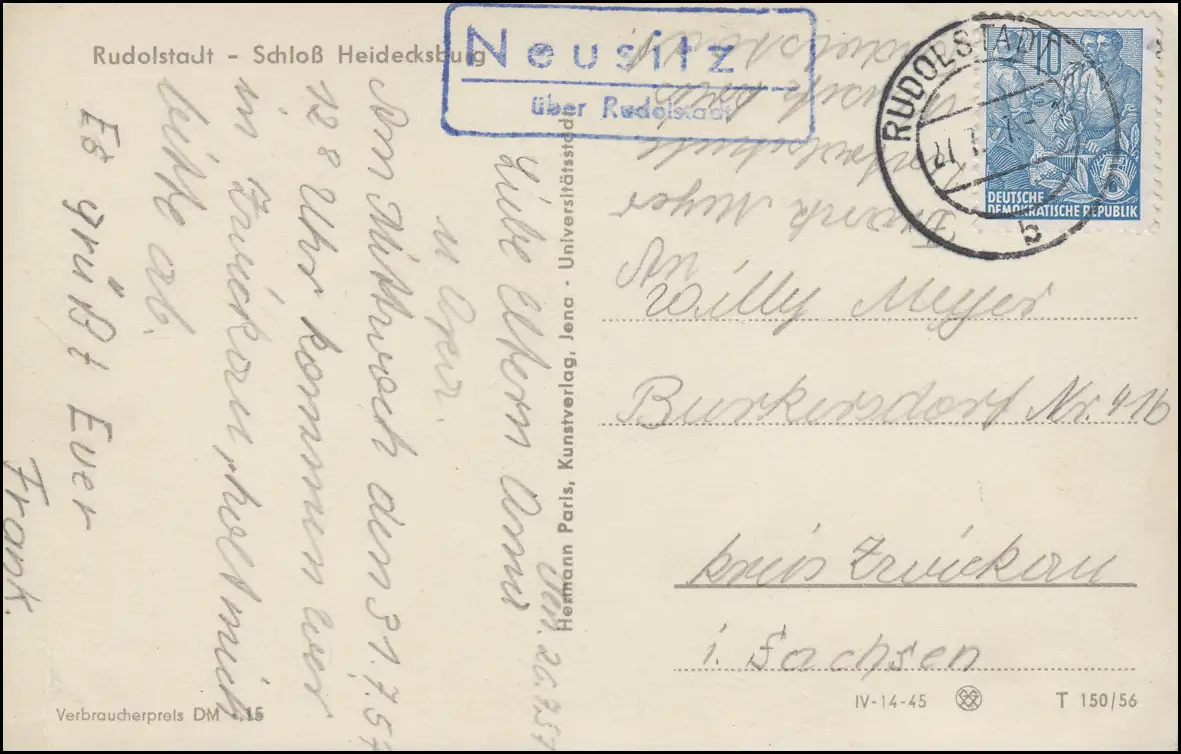 Rudolstadt – Schloß Heidecksburg
Neusitz
über Rudolstadt
RUDOLSTADT
b
10
5
DEUTSCHE
DEMOKRATISCHE REPUBLIK
Frank Meyer
26.7.57
Liebe Eltern Oma
u Opa.
Am Mittwoch den 31.7.57
12 8 Uhr kommen wir
in Zwickau, holt mich
bitte ab.
Es grüßt Euer
Frank.
Hermann Paris, Kunstverlag, Jena · Universitätsstadt
An
Willy Meyer
Burkersdorf Nr. 41b
Kreis Zwickau
i. Sachsen
Verbraucherpreis DM -.15
IV-14-45
T 150/56